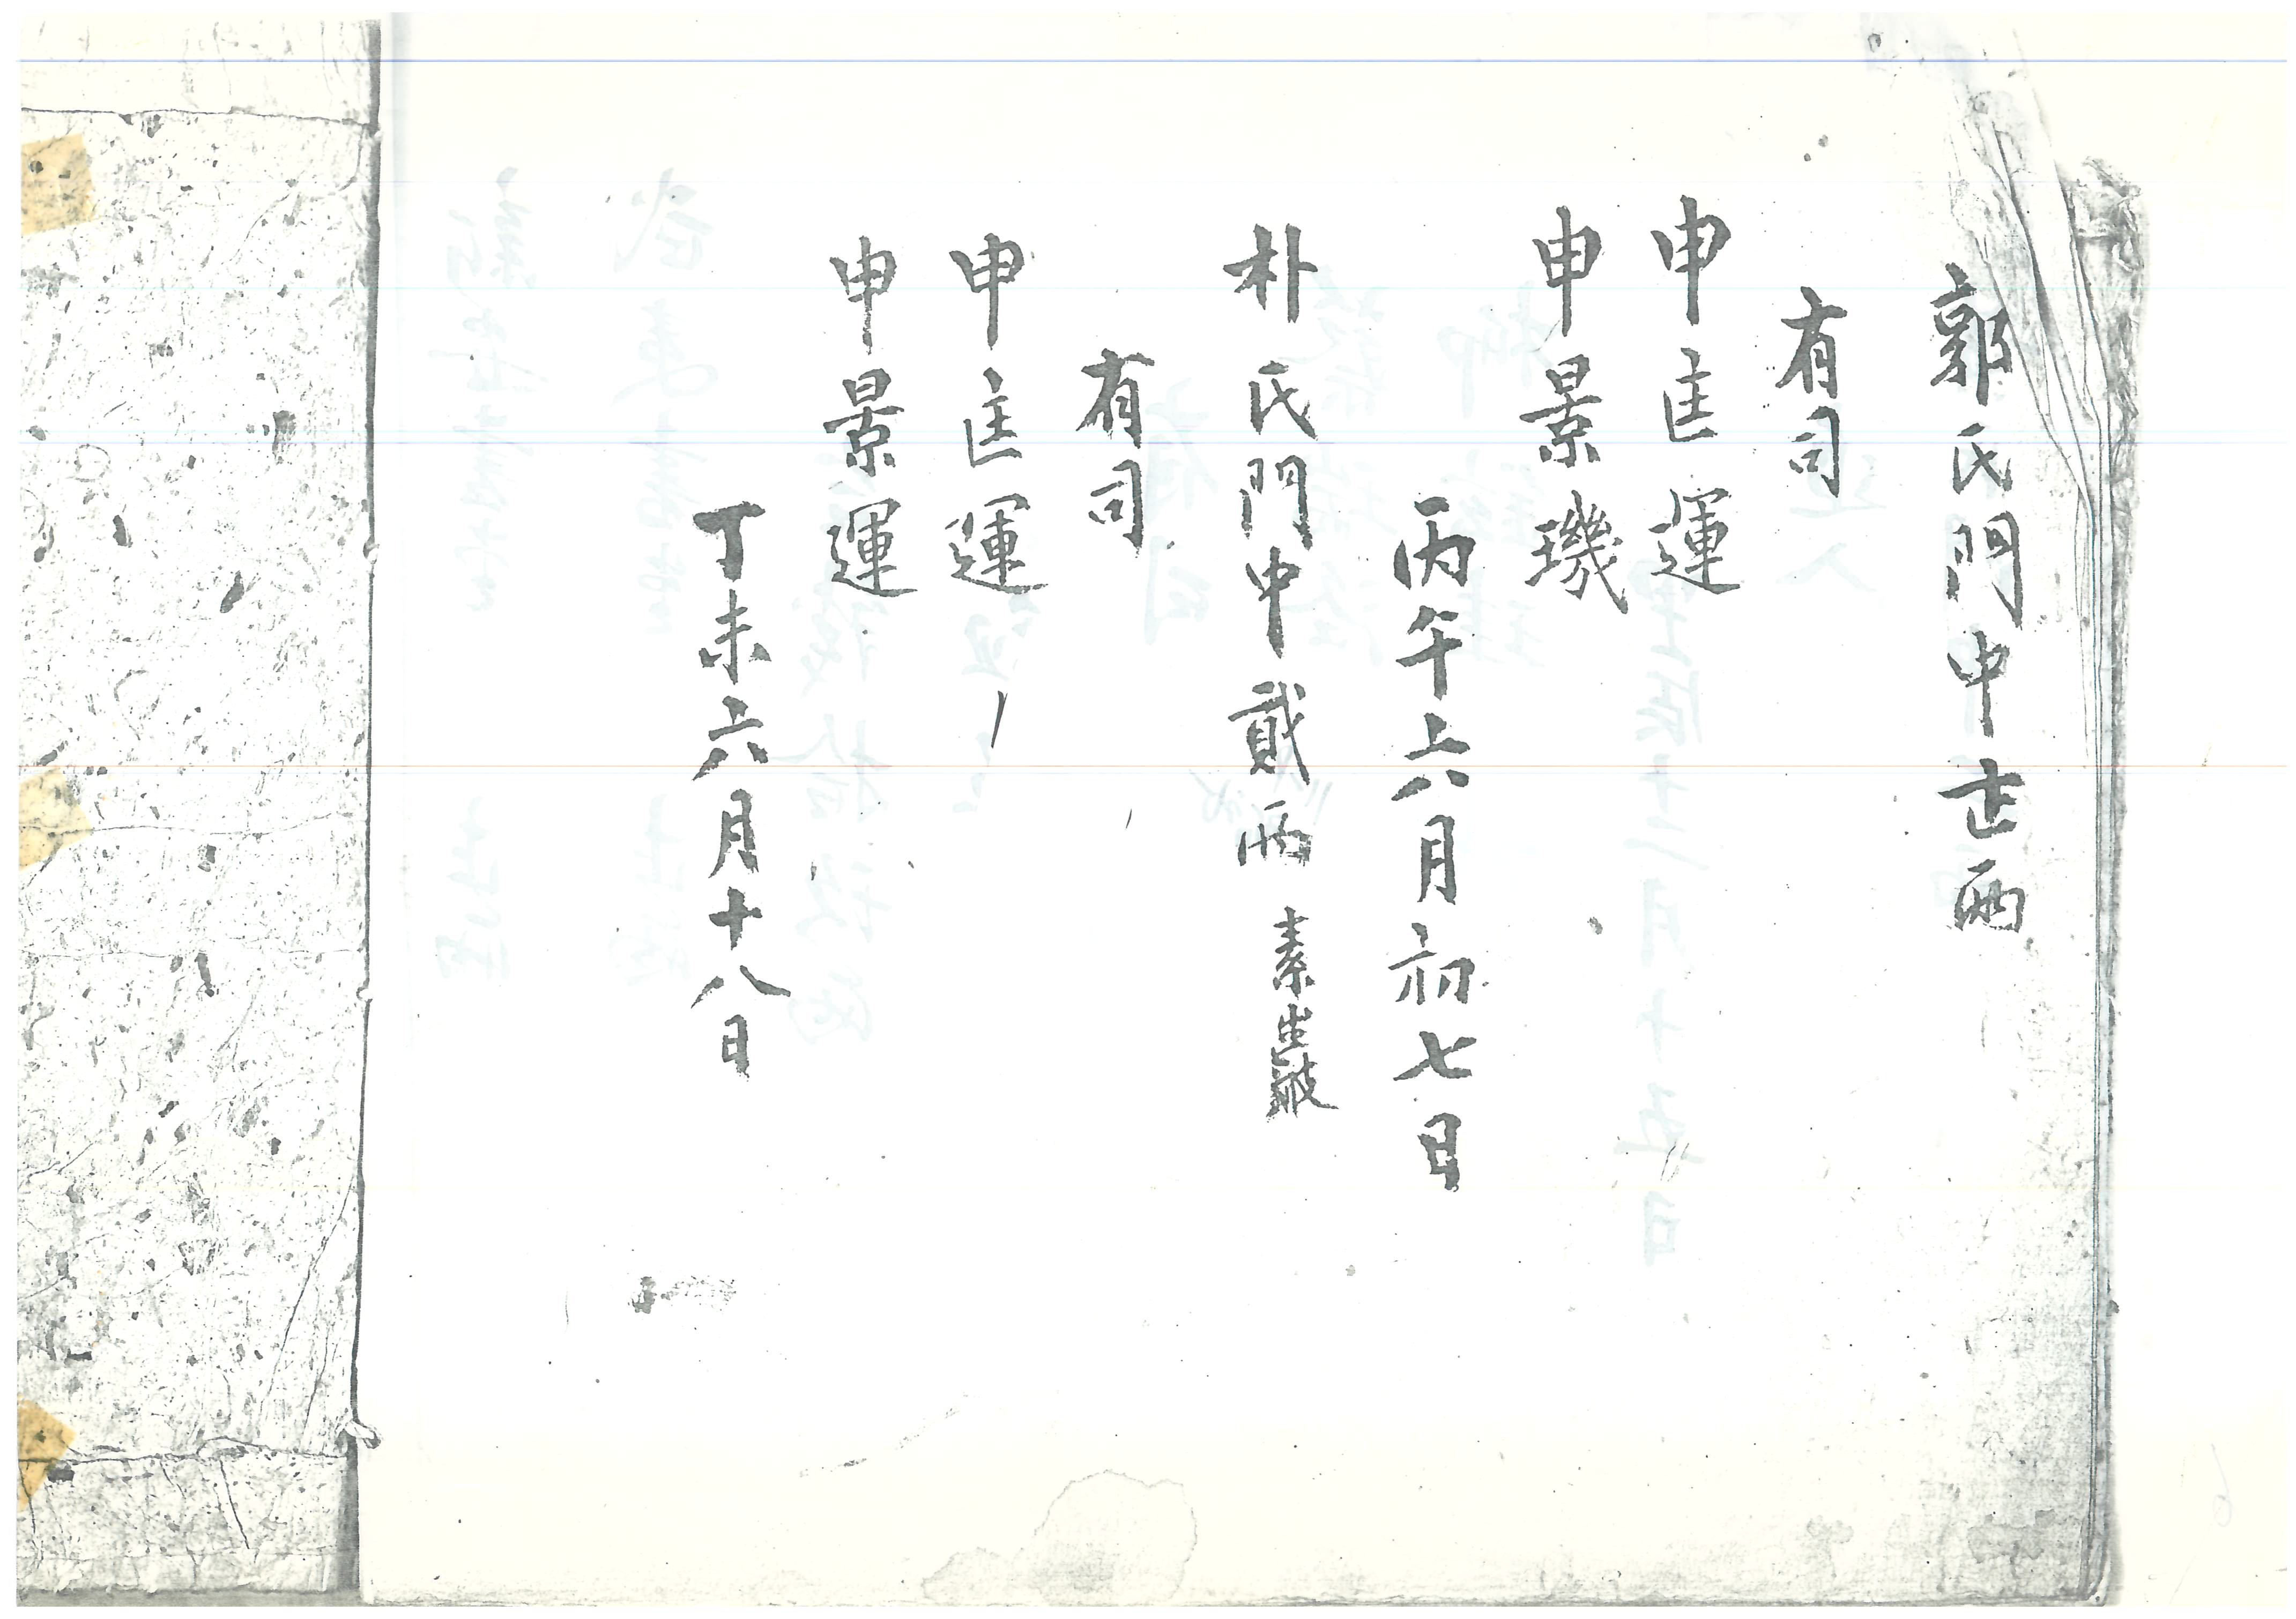 郭氏門中壱兩
有司
申匡運
申景璣
丙午六月初七日
朴氏門中貳兩 素巖
有司
申匡運
申景運
丁未六月十八日